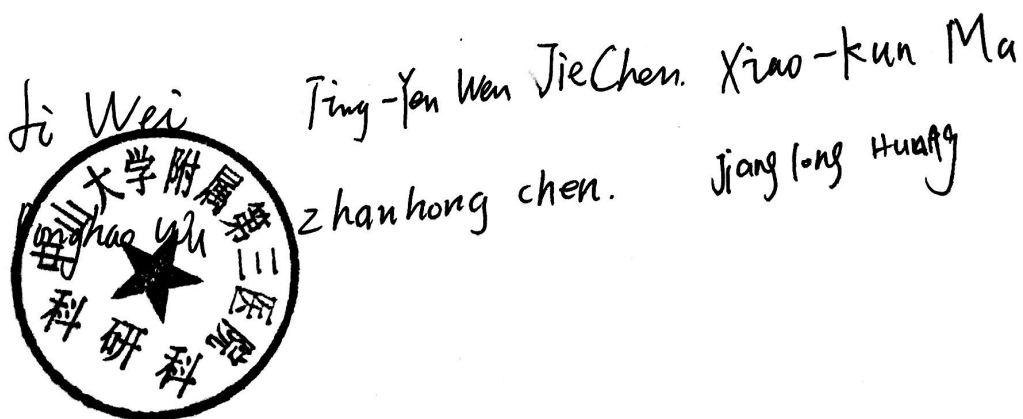 Li Wei Jing-Yan Wen Jie Chen. Xiao-kun Ma
hao Wu zhanhong chen. Jianglong HUANG
中山大学附属第三医院
科研科